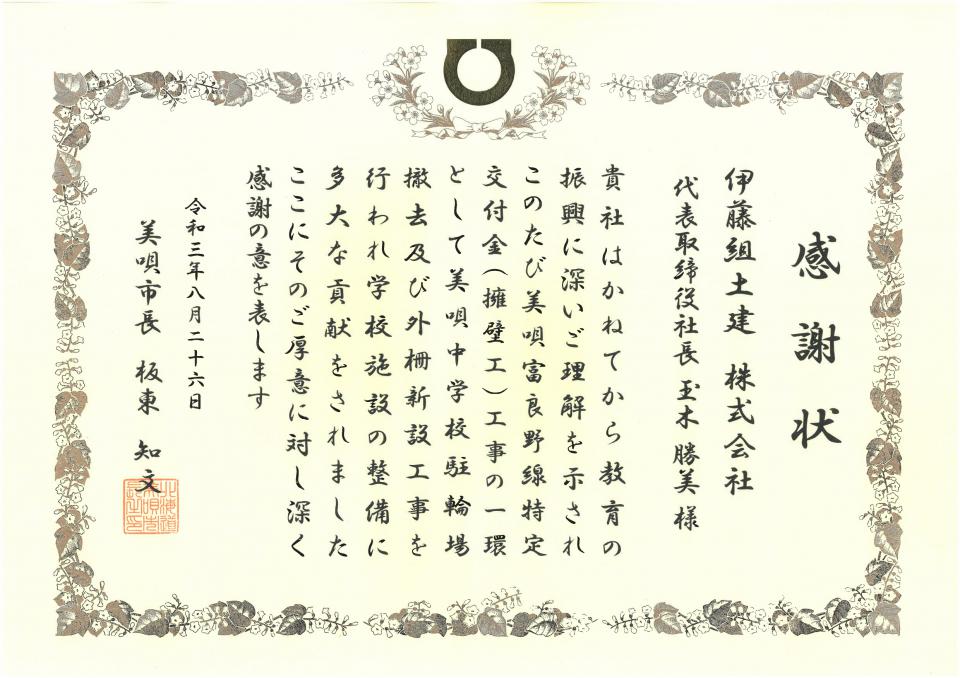 感謝状
伊藤組土建 株式会社
代表取締役社長 玉木 勝美 様
貴社はかねてから教育の
振興に深いご理解を示され
このたび美唄富良野線特定
交付金(擁壁工)工事の一環
として美唄中学校駐輪場
撤去及び外柵新設工事を
行われ学校施設の整備に
多大な貢献をされました
ここにそのご厚意に対し深く
感謝の意を表します
令和三年八月二十六日
美唄市長 板東 知文
北海道
美唄市
長之印